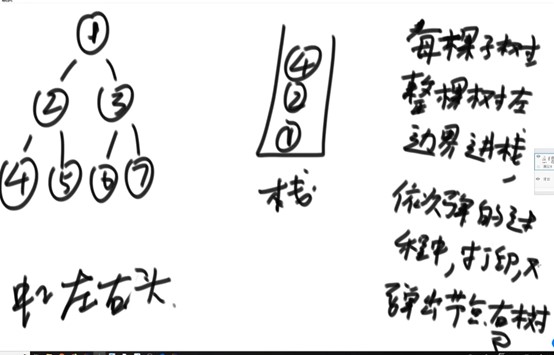 1
2 3
4 5 6 7
4
2
1
栈
中 左右头
每棵子树
整棵树左
边界进栈,
依次弹的过
程中,打印,对
弹出节点右树